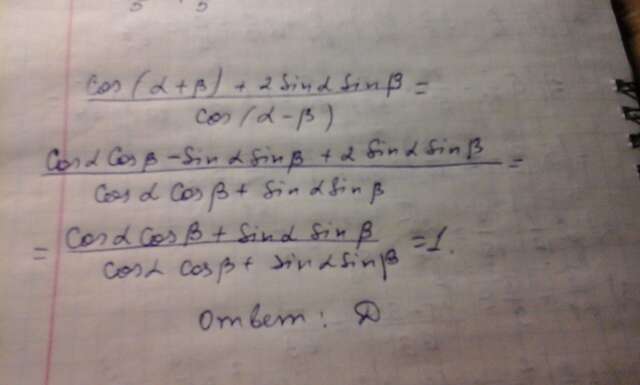 cos(α+β) + 2 sinα sinβ =
cos(α-β)
cosα cosβ - sinα sinβ + 2 sinα sinβ =
cosα cosβ + sinα sinβ
= cosα cosβ + sinα sinβ = 1.
cosα cosβ + sinα sinβ
Ответ: Д